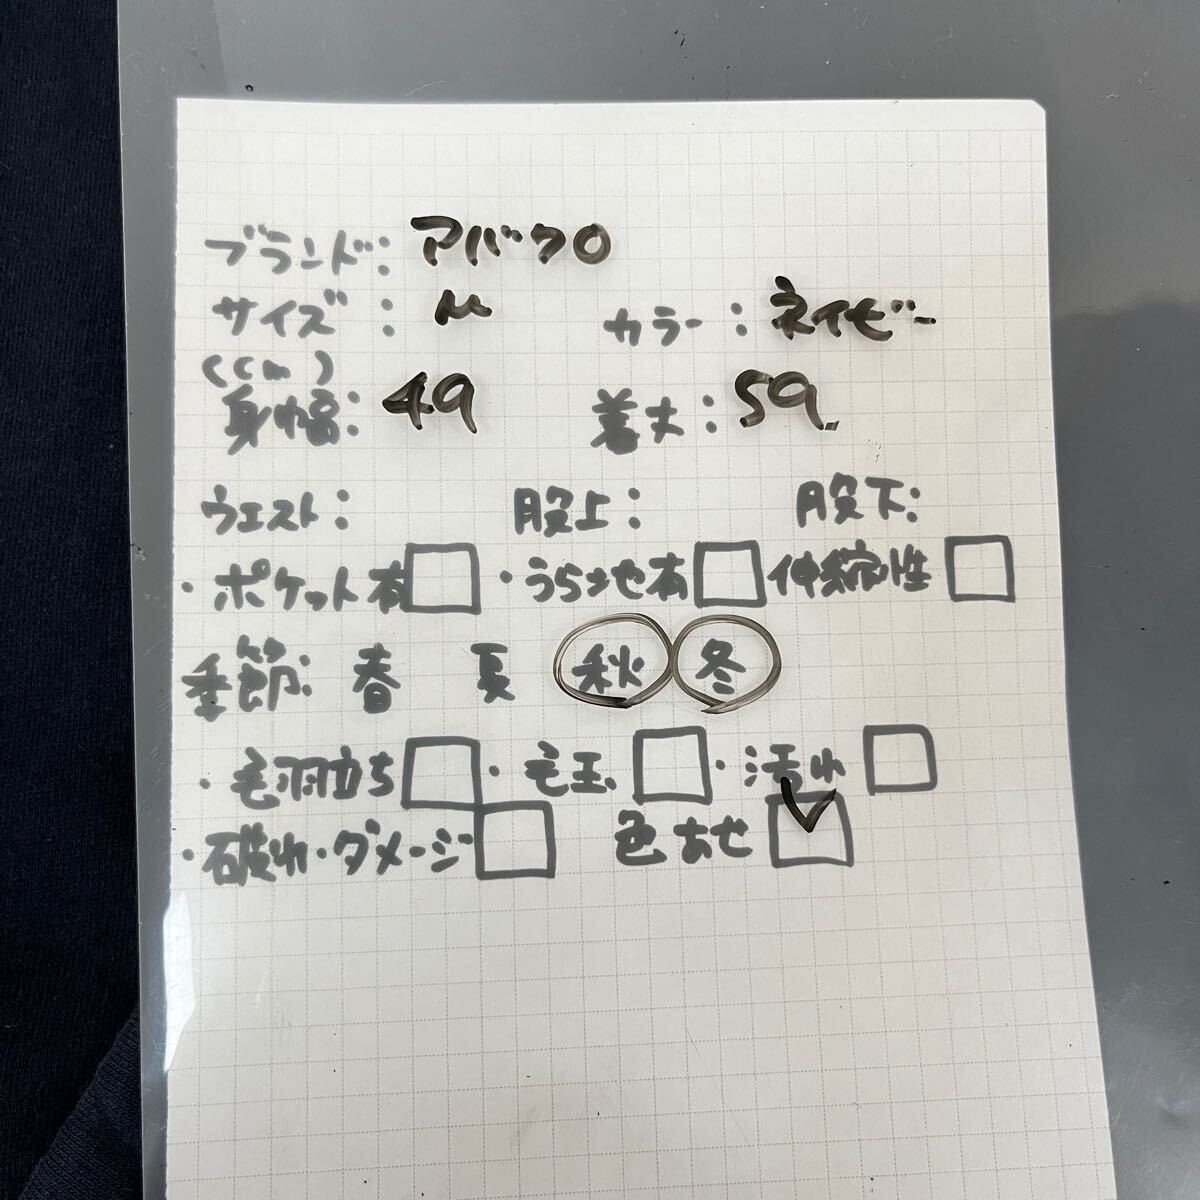 ブランド: アバクロ
サイズ : M カラー: ネイビー
(cm)
身巾畐: 49 着丈: 59
ウエスト: 股上: 股下:
・ポケット有□ ・うら地有□ 伸縮性□
季節: 春 夏 秋 冬
・毛羽立ち□ ・毛玉□ ・汚れ□
・破れ・ダメージ□ 色あせ☑